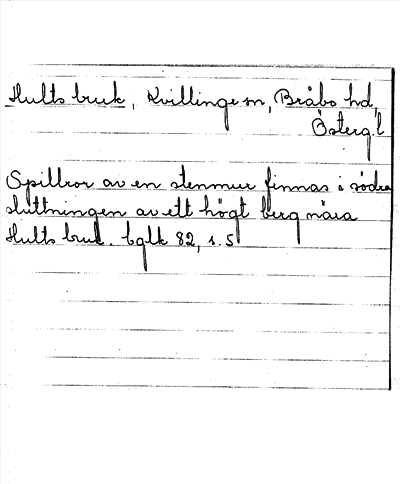 Hults bruk, Kvillinge sn, Bråbo hd,
Österg:l
Spillror av en stenmur finnas i södra
sluttningen av ett högt berg nära
Hults bruk. Cglk 82, s. 5